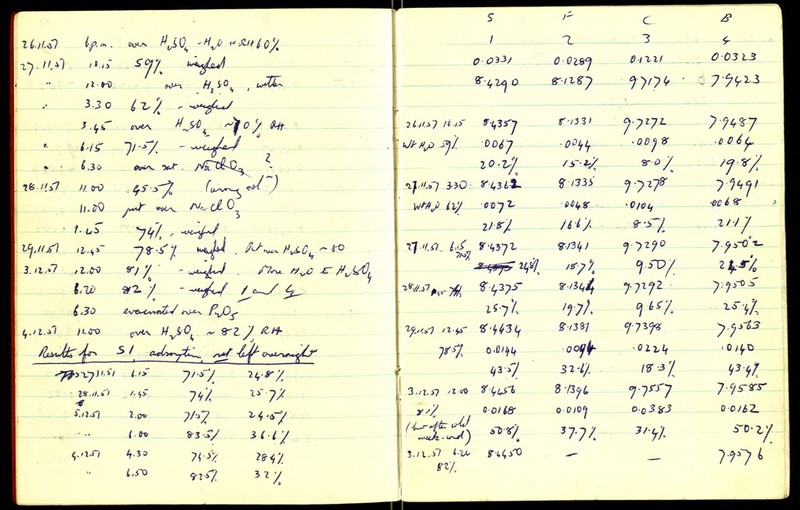 26.11.51 6 p.m. over H2SO4-H2O ~ RH 60%
27.11.51 10.15 59% weighed
" 12.00 over H2SO4, wetter
" 3.30 62% - weighed
" 3.45 over H2SO4 ~70% RH
" 6.15 71.5% - weighed
" 6.30 over sat. NaClO3 ?
28.11.51 11.00 45.5% (wrong sol-n)
11.00 put over NaClO3
1.45 74%, weighed
29.11.51 12.45 78.5% weighed. Put over H2SO4 ~ 80
3.12.51 12.00 81% - weighed. H2O to H2SO4
6.20 82% - weighed 1 and 4
6.30 evacuated over P2O5
4.12.51 11.00 over H2SO4 ~ 82% RH
Results for S1, adsorption, not left overnight
27.11.51 6.15 71.5% 24.8%
28.11.51 1.45 74% 25.7%
5.12.51 2.00 71.5% 24.5%
" 6.00 83.5% 36.6%
4.12.51 4.30 79.5% 28.4%
" 6.50 82.5% 32%
S F C B
1 2 3 4
0.0331 0.0289 0.1221 0.0323
8.4290 8.1287 9.7174 7.9423
26.11.51 10.15 8.4357 8.1331 9.7272 7.9487
Wt H2O 59% .0067 .0044 .0098 .0064
20.2% 15.2% 8.0% 19.8%
27.11.51 3.30 8.4362 8.1335 9.7278 7.9491
Wt H2O 62% .0072 .0048 .0104 .0068
21.8% 16.6% 8.5% 21.1%
27.11.51. 6.15 8.4372 8.1341 9.7290 7.9502
71.5% 24.8% 18.7% 9.50% 24.5%
28.11.51 74% 8.4375 8.1344 9.7292 7.9505
25.7% 19.7% 9.65% 25.4%
29.11.51 12.45 8.4434 8.1381 9.7398 7.9563
78.5% 0.0144 .0094 .0224 .0140
43.5% 32.6% 18.3% 43.4%
3.12.51 12.00 8.4456 8.1396 9.7557 7.9585
81% 0.0168 0.0109 0.0383 0.0162
(but after old week-end) 50.8% 37.7% 31.4% 50.2%
3.12.51 6.20 8.4450 — — 7.9576
82%